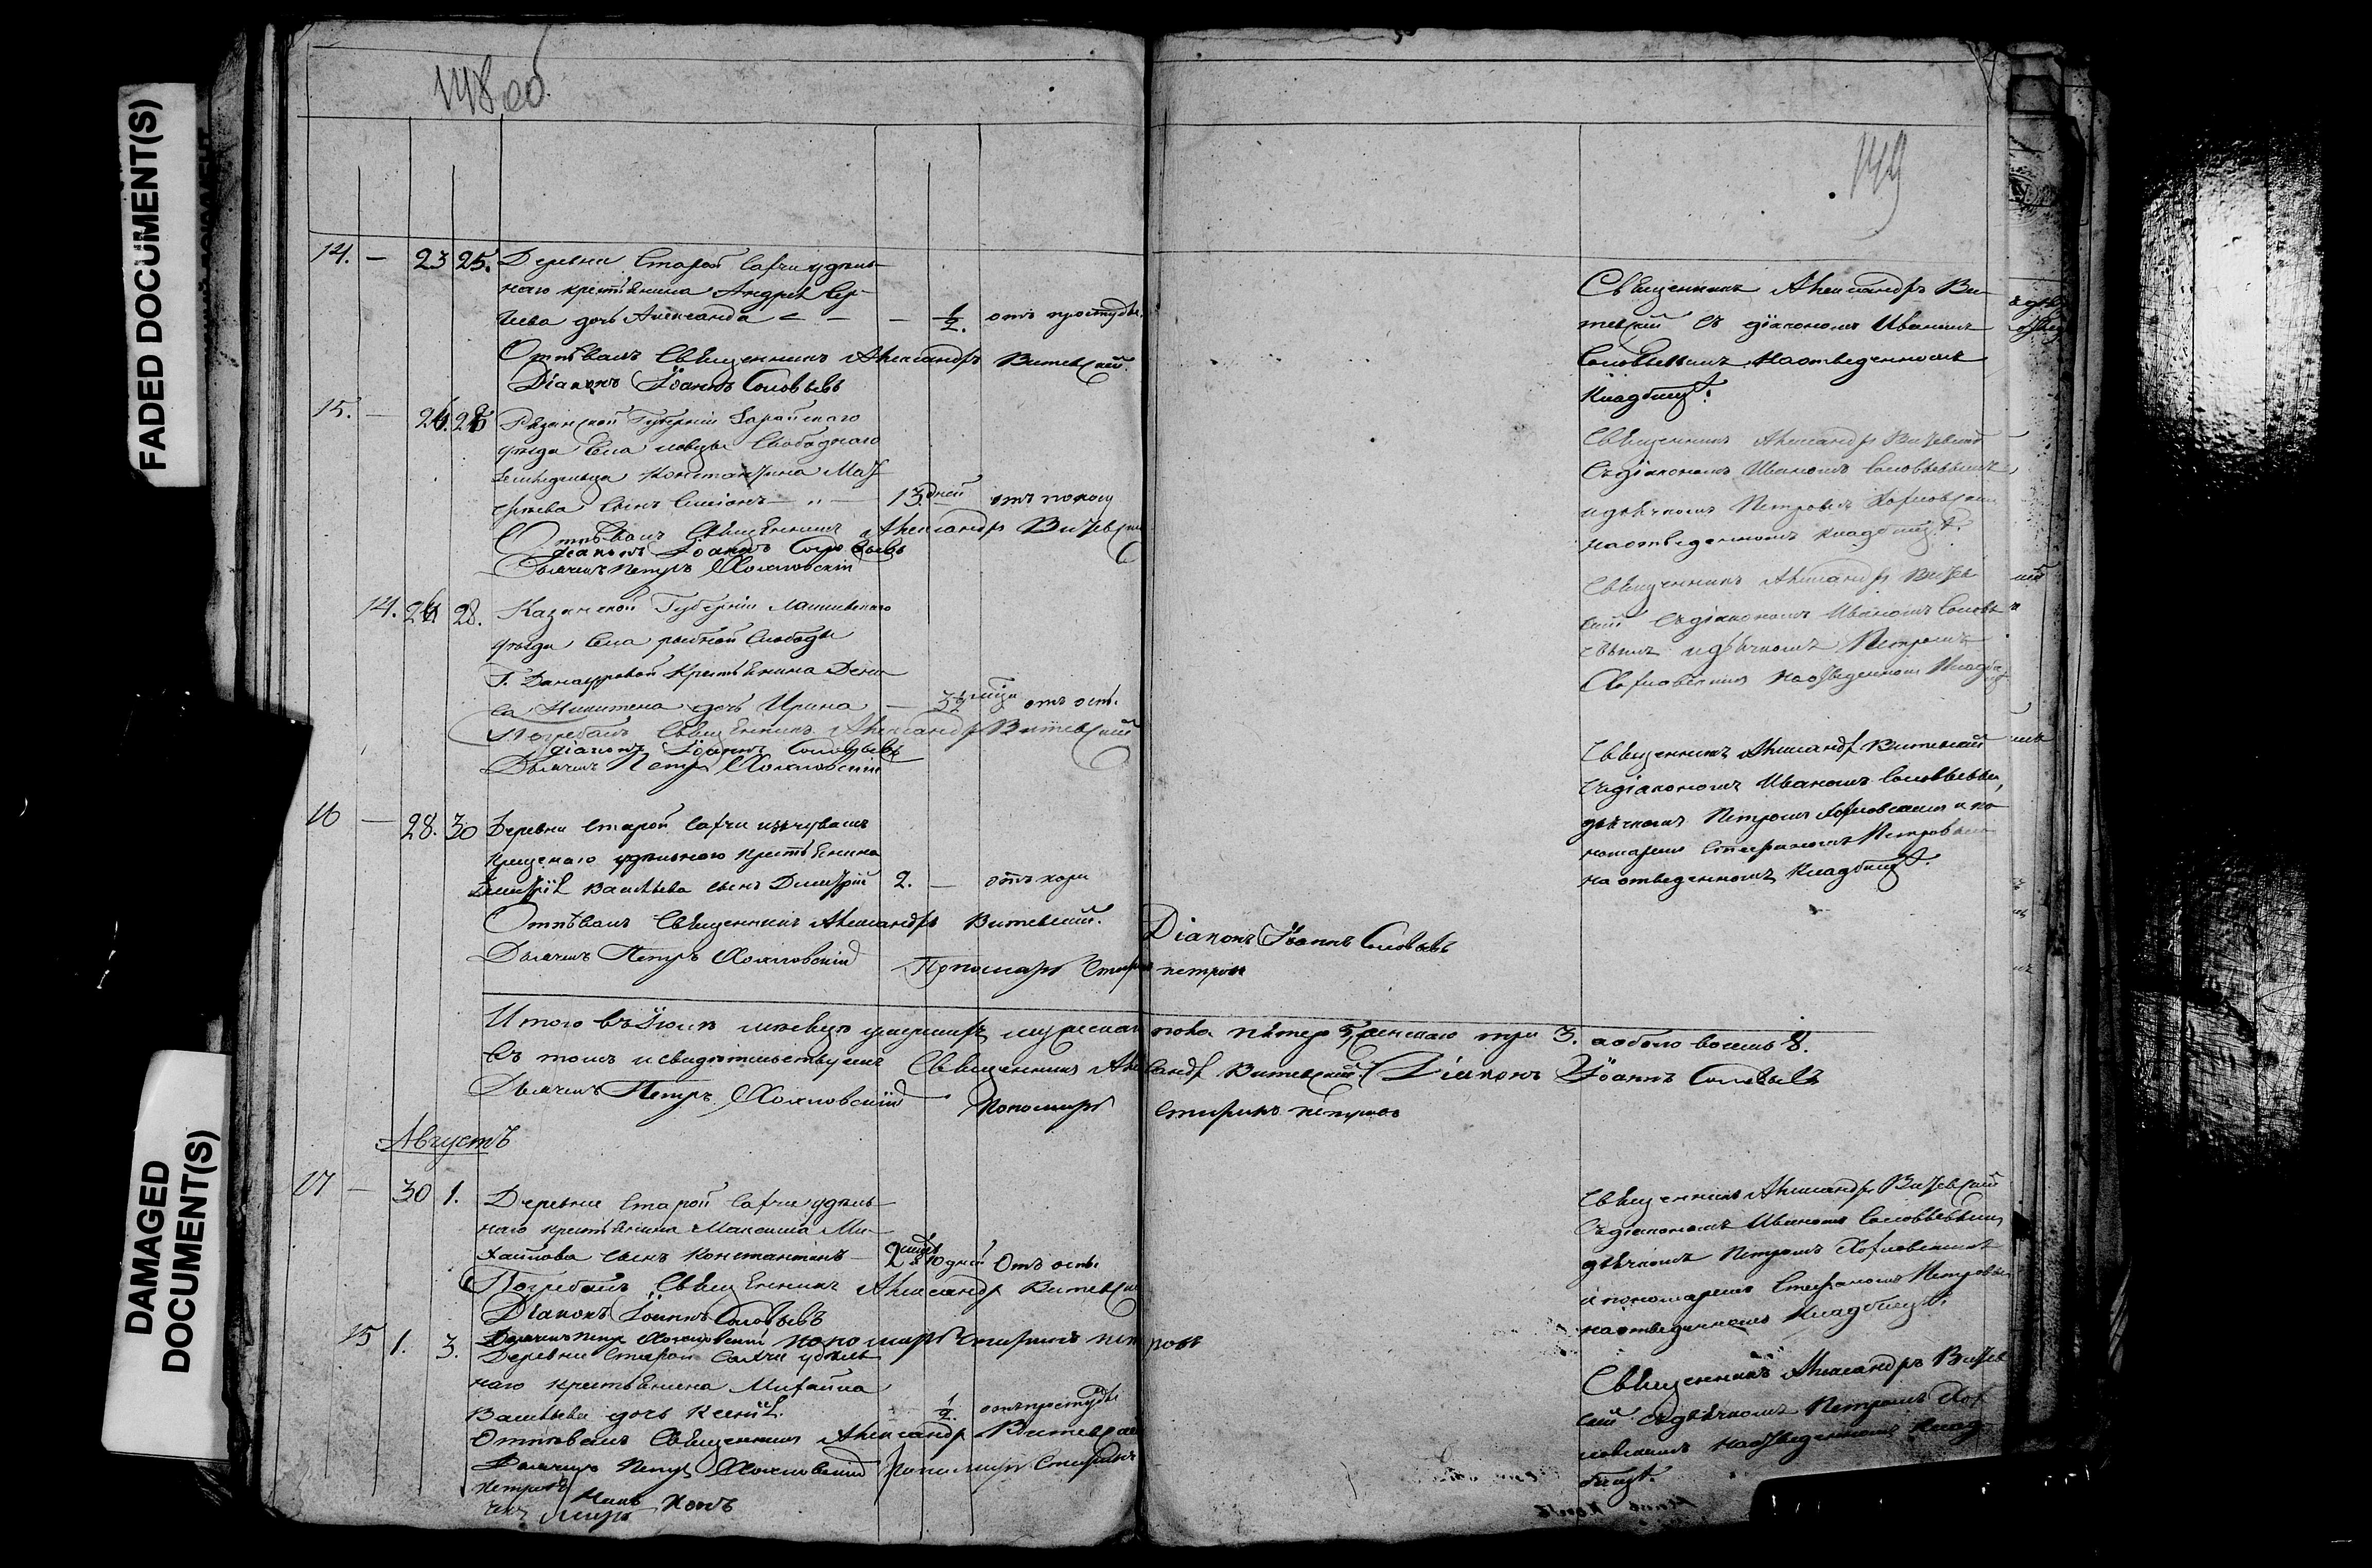 FADED DOCUMENT(S)
DAMAGED
DOCUMENT(S)
148 об
149
14. — 23 25. Деревни Старой Сахчи удѣль-
наго крестьянина Андрея Сер-
гѣева дочь Александа — — 1/2. отъ простуды.
Отпѣвалъ Священникъ Александръ Витевскій.
Діаконъ Іоаннъ Соловьевъ
Священникъ Александръ Ви-
тевскій съ діакономъ Иваномъ
Соловьевымъ на отведенномъ
кладбищѣ.
15. — 26. 28 Рязанской Губерніи Зарайскаго
уѣзда Села Свободнаго
Константина
сынъ — „ — 13 дней отъ поносу
Отпѣвалъ Священникъ Александръ Витевскій
діаконъ Іоаннъ Соловьевъ
Дьячекъ Петръ Холмовскій
Священникъ Александръ Витевскій
съ діакономъ Иваномъ Соловьевымъ
и дьячкомъ Петромъ
на отведенномъ кладбищѣ.
14. 26 28. Казанской Губерніи Лаишевскаго
уѣзда Села рыбной Слободы
Г. крестьянина Дени-
са Никитина дочь Ирина — отъ осп.
Погребалъ Священникъ Александръ Витевскій
діаконъ Іоаннъ Соловьевъ
Дьячекъ Петръ Холмовскій
Священникъ Александръ Витев
скій съ діакономъ Иваномъ Соловь
евымъ и дьячкомъ Петромъ
на отведенномъ кладби
16 — 28. 30 Деревни Старой Сахчи изъ чувашъ
крещенаго удѣльнаго крестьянина
Димитрія Васильева сынъ Димитрій 2. — отъ кори
Отпѣвалъ Священникъ Александръ Витевскій.
Діаконъ Іоаннъ Соловьевъ
Дьячекъ Петръ Холмовскій Пономарь Стефанъ петровъ
Священникъ Александръ Витевскій
съ діакономъ Иваномъ Соловьевым,
дьячкомъ Петромъ и по-
номаремъ Стефаномъ Петровымъ
на отведенномъ кладбищѣ.
Итого въ Іюлѣ мѣсецѣ умершихъ мужеска пола пѣтеро 5, женскаго три 3. а обоего восемь 8.
Въ томъ и свидѣтельствуемъ Священникъ Александръ Витевскій. Діаконъ Іоаннъ Соловьевъ
Дьячекъ Петръ Холмовскій Пономарь Стефанъ петровъ
Августъ
17 — 30 1. Деревни Старой Сахчи удѣль-
наго крестьянина Максима Ми-
хайлова сынъ Константинъ — 2 10 дней Отъ оспы
Погребалъ Священникъ Александръ Витевскій
Діаконъ Іоаннъ Соловьевъ
Дьячекъ Петръ Холмовскій пономарь Стефанъ петровъ
Священникъ Александръ Витевскій
съ діакономъ Иваномъ Соловьевым
дьячкомъ Петромъ
и пономаремъ Стефаномъ Петровым
на отведенномъ кладбищѣ.
15 1. 3. Деревни Старой Сахчи удѣль
наго крестьянина Михайла
Васильева дочь Ксенія. 1/2. отъ простуды
Отпѣвалъ Священникъ Александръ Витевскій
Дьячекъ Петръ Холмовскій Пономарь Стефанъ
Петровъ
Священникъ Александръ Витев
скій съ дьячкомъ Петромъ Хол
мовскимъ на отведенномъ клад
бищѣ.